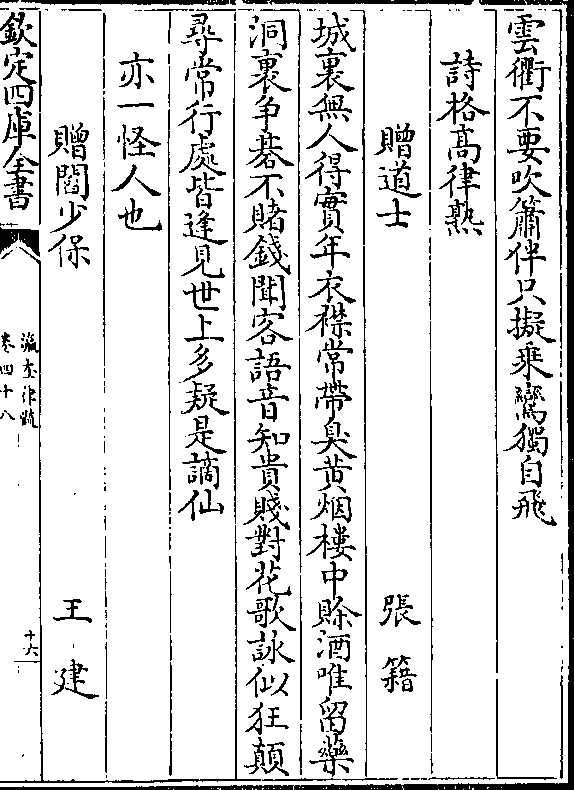 雲衢不要吹簫伴只擬乗鸞獨自飛
詩格髙律熟
贈道士 張籍
城裏無人得實年衣襟常帶臭黄烟樓中賒酒唯留藥
洞裏争碁不賭錢聞客語音知貴賤對花歌詠似狂顛
尋常行處皆逢見世上多疑是謫仙
亦一怪人也
贈閻少保 王建
欽定四庫全書
瀛奎律髓
卷四十八
十六